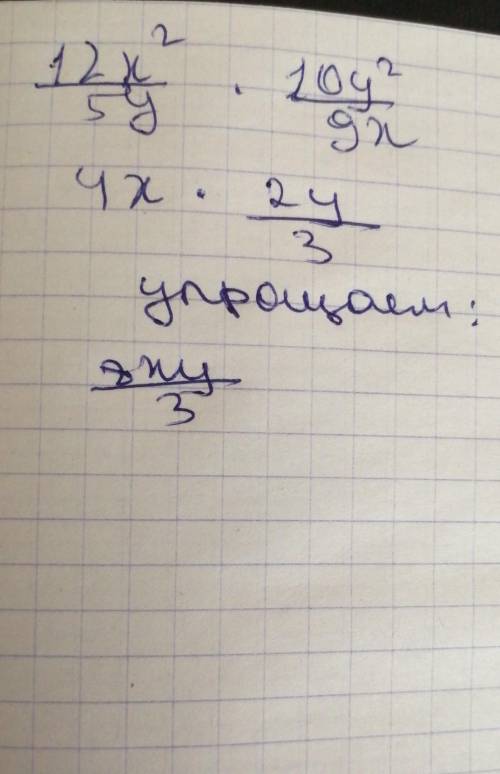 12x²/5y · 10y²/9x
4x · 2y/3
упрощаем:
8xy/3